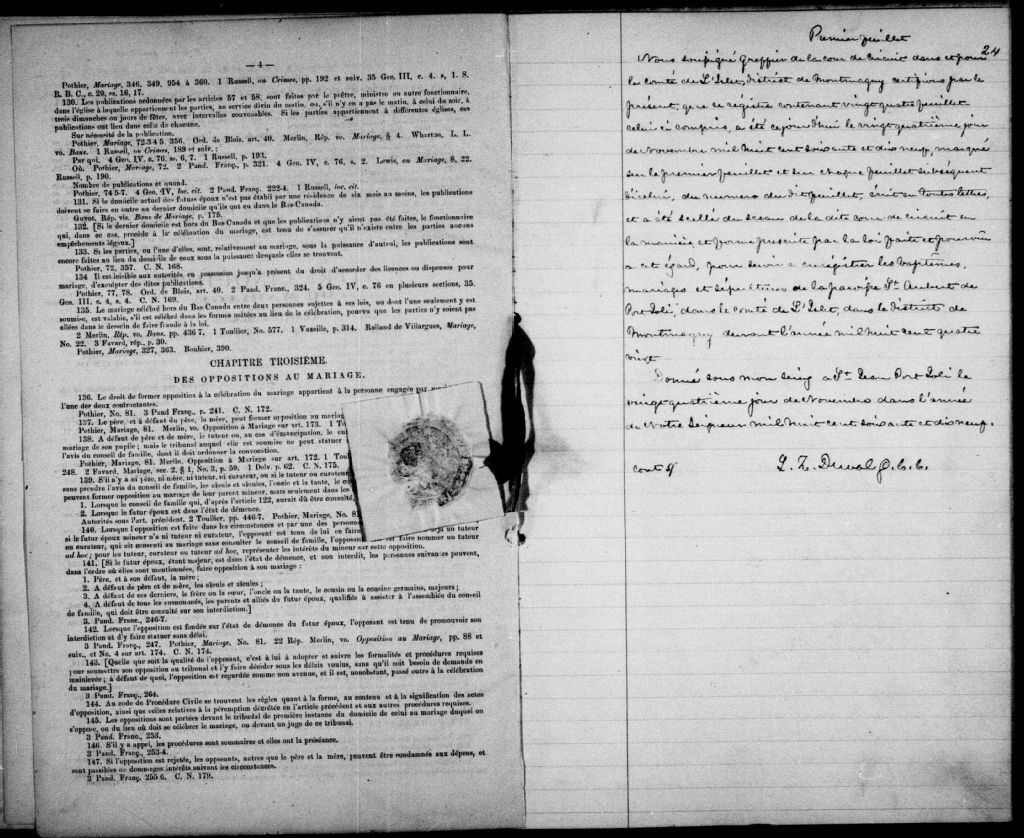 — 4 —
Pothier, Mariage, 346, 349, 954 à 360. 1 Russell, on Crimes, pp. 192 et suiv. 35 Geo. III, c. 4. s, 1. S.
R. B. C., c. 20, ss. 16, 17.
130. Les publications ordonnées par les articles 57 et 58, sont faites par le prêtre, ministre ou autre fonctionnaire,
dans l'église à laquelle appartiennent les parties, au service divin du matin, ou, s'il n'y en a pas le matin, à celui du soir, à
trois dimanches ou jours de fêtes, avec intervalles convenables. Si les parties appartiennent à différentes églises, ces
publications ont lieu dans celle de chacune.
Sur nécessité de la publication.
Pothier, Mariage, 72-3-4 5. 356. Ord. de Blois, art. 40. Merlin, Rép. vo. Mariage, § 4. Wharton, L. L.
vo. Bans. 1 Russell, on Crimes, 189 et suiv. :
Par qui. 4 Geo. IV. c. 76, ss. 6, 7. 1 Russell, p. 193.
Où. Pothier, Mariage, 72. 2 Pand. Franç., p. 321. 4 Geo. IV, c. 76, s. 2. Lewis, on Mariage, 8, 22.
Russell, p. 190.
Nombre de publications et quand.
Pothier, 74 5-7. 4 Geo. IV, loc. cit. 2 Pand. Franç. 222-4. 1 Russell, loc. cit.
131. Si le domicile actuel des futurs époux n'est pas établi par une résidence de six mois au moins, les publications
doivent se faire en outre au dernier domicile qu'ils ont eu dans le Bas-Canada.
Guyot. Rép. vis. Bans de Mariage, p. 175.
132. [Si le dernier domicile est hors du Bas-Canada et que les publications n'y aient pas été faites, le fonctionnaire
qui, dans ce cas, procède à la célébration du mariage, est tenu de s'assurer qu'il n'existe entre les parties aucuns
empêchements légaux.]
133. Si les parties, ou l'une d'elles, sont, relativement au mariage, sous la puissance d'autrui, les publications sont
encore faites au lieu du domicile de ceux sous la puissance desquels elles se trouvent.
Pothier, 72, 357. C. N. 168.
134 Il est loisible aux autorités en possession jusqu'à présent du droit d'accorder des licences ou dispenses pour
mariage, d'exempter des dites publications.
Pothier, 77, 78. Ord. de Blois, art. 40. 2 Pand. Franc., 324. 5 Geo. IV, c. 76 en plusieurs sections, 35.
Geo. III, c. 4, s. 4. C. N. 169.
135. Le mariage célébré hors du Bas-Canada entre deux personnes sujettes à ses lois, ou dont l'une seulement y est
soumise, est valable, s'il est célébré dans les formes usitées au lieu de la célébration, pourvu que les parties n'y soient pas
allées dans le dessein de faire fraude à la loi.
2 Merlin, Rép. vo. Bans. pp. 436 7. 1 Toullier, No. 577. 1 Vazeille, p. 314. Rolland de Villargues, Mariage,
No. 22. 3 Favard, rép., p. 30.
Pothier, Mariage, 327, 363. Bouhier, 390.
CHAPITRE TROISIÈME.
DES OPPOSITIONS AU MARIAGE.
136. Le droit de former opposition à la célébration du mariage appartient à la personne engagée par
l'une des deux contractantes.
Pothier, No. 81. 3 Pand Franç., p. 241. C. N. 172.
137. Le père, et à défaut du père, la mère, peut former opposition au mariage
Pothier, Mariage, 81. Merlin, vo. Opposition à Mariage sur art. 173. 1
138. A défaut de père et de mère, le tuteur ou, au cas d'émancipation, le
mariage de son pupile ; mais le tribunal auquel elle est soumise ne peut statuer
l'avis du conseil de famille, dont il doit ordonner la convocation.
Pothier, Mariage, 81. Merlin, Opposition à Mariage sur art. 172. 1 Toul
248. 2 Favard, Mariage, sec. 2. § 1, No. 3, p. 59. 1 Delv. p. 62. C. N. 175.
139. S'il n'y a ni père, ni mère, ni tuteur, ni curateur, ou si le tuteur ou curateur
sans prendre l'avis du conseil de famille, les aïeuls et aïeules, l'oncle et la tante, le
peuvent former opposition au mariage de leur parent mineur, mais seulement dans les
1. Lorsque le conseil de famille qui, d'après l'article 122, aurait dû être consulté,
2. Lorsque le futur époux est dans l'état de démence.
Autorités sous l'art. précédent. 2 Toullier, pp. 446-7. Pothier, Mariage, No. 81
140. Lorsque l'opposition est faite dans les circonstances et par une des personnes
si le futur époux mineur n'a ni tuteur ni curateur, l'opposant est tenu de lui en faire
ou curateur, qui ait consenti au mariage sans consulter le conseil de famille, l'opposant faire nommer un tuteur
ad hoc ; pour les tuteur, curateur ou tuteur ad hoc, représenter les intérêts du mineur sur cette opposition.
141. [Si le futur époux, étant majeur, est dans l'état de démence, et non interdit, les personnes suivantes peuvent,
dans l'ordre où elles sont mentionnées, faire opposition à son mariage :
1. Père, et à son défaut, la mère ;
2. A défaut de père et de mère, les aïeuls et aïeules ;
3. A défaut de ces derniers, le frère ou la sœur, l'oncle ou la tante, le cousin ou la cousine germains, majeurs ;
4. A défaut de tous les susnommés, les parents et alliés du futur époux, qualifiés à assister à l'assemblée du conseil
de famille, qui doit être consulté sur son interdiction.]
3. Pand. Franc., 246-7.
142. Lorsque l'opposition est fondée sur l'état de démence du futur époux, l'opposant est tenu de promouvoir son
interdiction et d'y faire statuer sans délai.
3 Pand. Franç., 247. Pothier, Mariage, No. 81. 22 Rép. Merlin, vo. Opposition au Mariage, pp. 88 et
suiv., et No. 4 sur art. 174. C. N. 174.
143. [Quelle que soit la qualité de l'opposant, c'est à lui à adopter et suivre les formalités et procédures requises
pour soumettre son opposition au tribunal et l'y faire décider sous les délais voulus, sans qu'il soit besoin de demande en
mainlevée ; à défaut de quoi, l'opposition est regardée comme non avenue, et il est, nonobstant, passé outre à la célébration
du mariage.]
3 Pand. Franç., 264.
144. Au code de Procédure Civile se trouvent les règles quant à la forme, au contenu et à la signification des actes
d'opposition, ainsi que celles relatives à la péremption décrétée en l'article précédent et aux autres procédures requises.
145. Les oppositions sont portées devant le tribunal de première instance du domicile de celui au mariage duquel on
s'oppose, ou du lieu où doit se célébrer le mariage, ou devant un juge de ce tribunal.
3 Pand. Franç., 253.
146. S'il y a appel, les procédures sont sommaires et elles ont la préséance.
3 Pand. Franç., 253-4.
147. Si l'opposition est rejetée, les opposants, autres que le père et la mère, peuvent être condamnés aux dépens, et
sont passibles de dommages intérêts suivant les circonstances.
3 Pand. Franç. 255 6. C. N. 179.
Premier feuillet
24
Nous soussigné Greffier de la cour de Circuit dans et pour
le comté de L'Islet, district de Montmagny certifions par le
présent, que ce régistre contenant vingt quatre feuillet
celui ci compris, a été ce jour d'hui le vingt quatrième jour
de Novembre mil huit cent soixante et dix neuf, marqué
sur le premier feuillet et sur chaque feuillet subséquent
d'icelui, du numéro du dit feuillet, écrit en toutes lettres,
et a été scellé du sceau de la dite cour de circuit en
la manière et forme prescrite par la loi faite et pourvue
a cet égard, pour servir a enrégistrer les baptêmes,
mariages et sépultures de la paroisse St. Aubert de
Port Joli, dans le comté de L'Islet, dans le district de
Montmagny durant l'année mil huit cent quatre
vingt.
Donné sous mon seing a St. Jean Port Joli le
vingt quatrième jour de Novembre dans l'année
de Notre Seigneur mil huit cent soixante et dix neuf.
L. Z. Duval G. C. C.